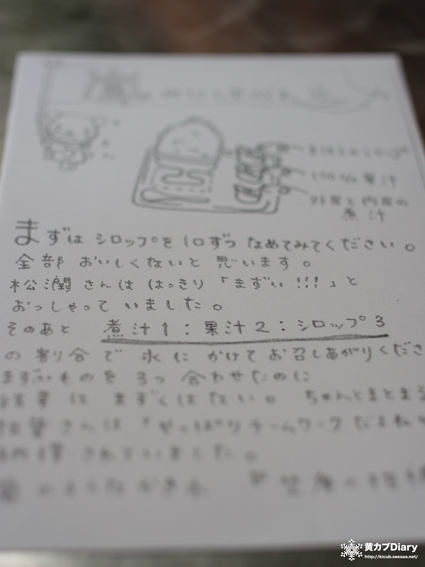 嵐
100%果汁
外皮と内皮の
煮汁
まずは シロップを1口ずつ なめてみてください。
全部 おいしくないと 思います。
松潤さんは はっきり 「まずい!!!」と
おっしゃって いました。
そのあと 煮汁1:果汁2:シロップ3
の 割合で 氷に かけて お召しあがりくださ
まずいものを 3つ 合わせたのに
結果は まずくはない。 ちゃんとまとまる
相葉さんは 「やっぱりチームワークだよね
納得されていました。
黄カブDiary
http://kicub.seesaa.net/